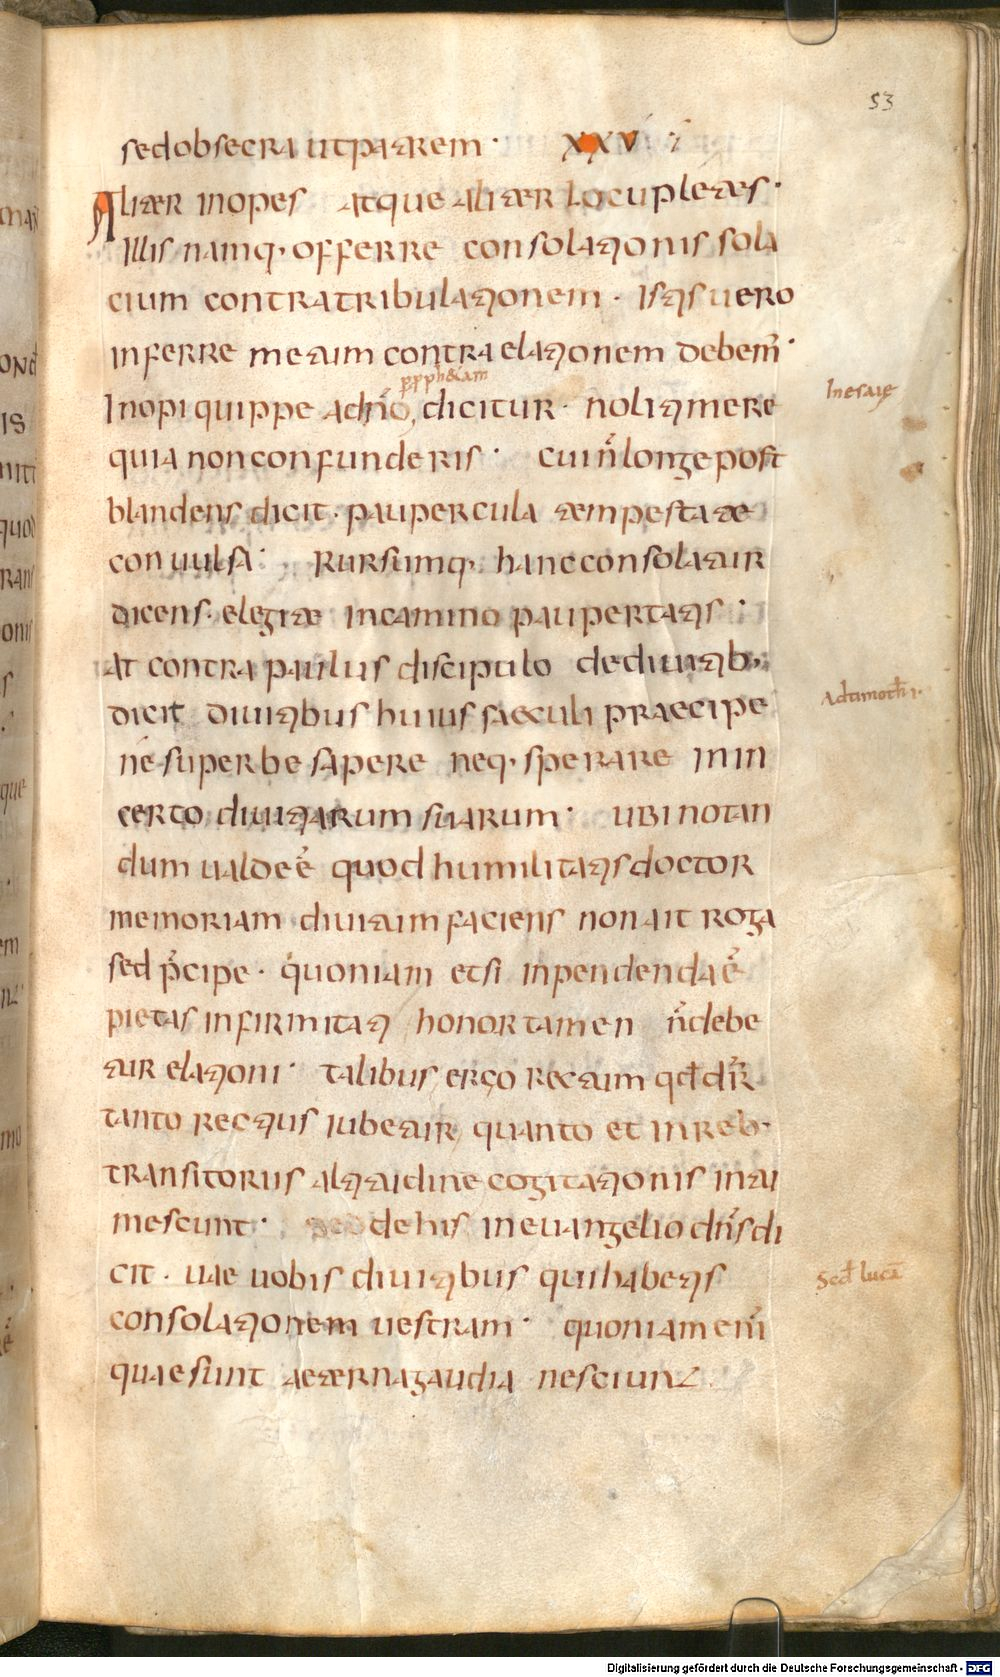 53
sed obsecra ut patrem · XXVI i
Aliter inopes atque aliter locupletes ·
Illis namq· offerre consolationis sola
cium contra tribulationem · Istis uero
inferre metum contra elationem debem̅ ·
prophetiam
Inopi quippe a dn̅o, dicitur · noli timere
In esaię
quia non confunderis · cui n̅ longe post
blandens dicit · paupercula tempestate
conuulsa · Rursumq· hanc consolatur
dicens · elegi te in camino paupertatis ·
At contra paulus discipulo de diuitib·
Ad timoth̅ I ·
dicit diuitibus huius saeculi praecipe
ne superbe sapere neq· sperare in in
certo diuitiarum suarum · ubi notan
dum ualde ē quod humilitatis doctor
memoriam diuitum faciens non ait roga
sed p̅cipe · quoniam etsi inpendenda ē
pietas infirmitati honor tamen n̅ debe
tur elationi · talibus ergo rectum qd̅ dr̅
tanto rectius iubetur quanto et in reb·
transitoriis altitudine cogitationis intu
mescunt · sed de his in euangelio dn̅s di
cit · uae uobis diuitibus qui habetis
Scd̅ lucā
consolationem uestram · quoniam enī
quae sunt aeterna gaudia nesciunt
Digitalisierung gefördert durch die Deutsche Forschungsgemeinschaft - DFG